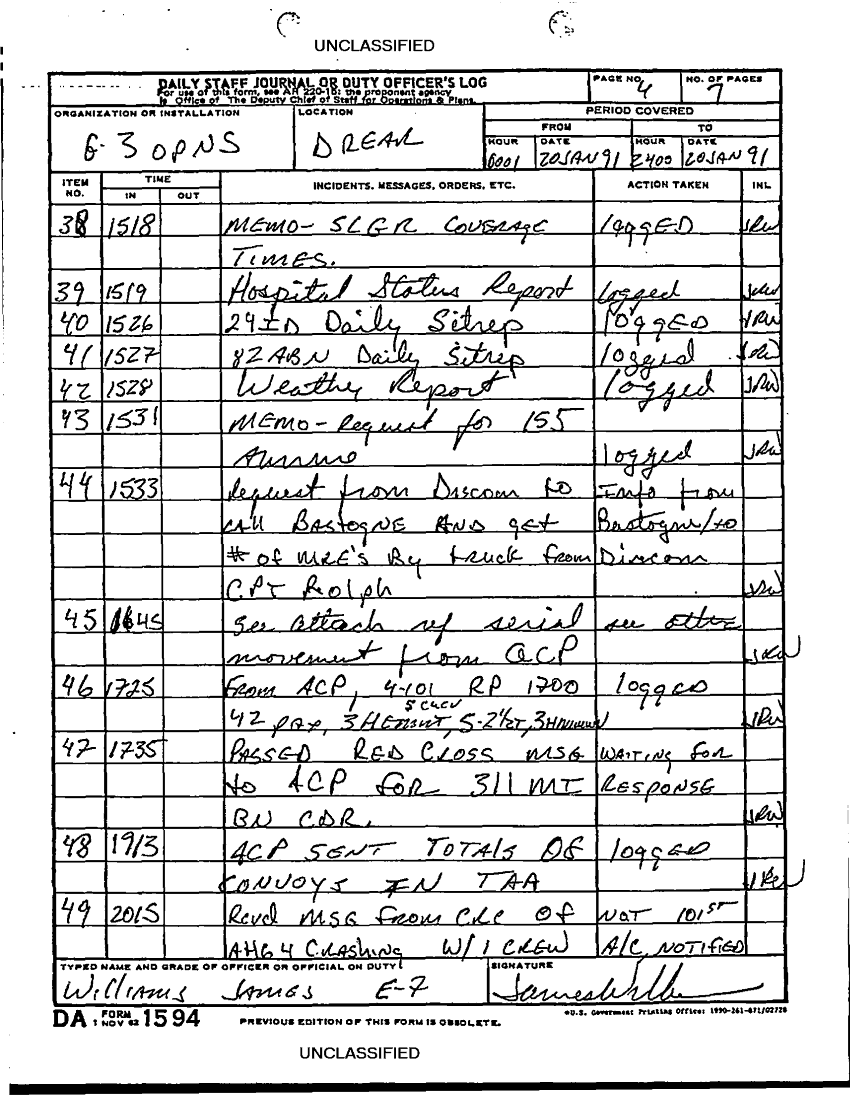 UNCLASSIFIED
DAILY STAFF JOURNAL OR DUTY OFFICER'S LOG
For use of this form, see AR 220-15; the proponent agency
is Office of The Deputy Chief of Staff for Operations & Plans.
PAGE NO. 4
NO. OF PAGES 7
ORGANIZATION OR INSTALLATION
G-3 OPNS
LOCATION
D REAR
PERIOD COVERED
FROM TO
HOUR DATE HOUR DATE
0001 20JAN91 2400 20JAN91
ITEM NO. TIME IN OUT INCIDENTS, MESSAGES, ORDERS, ETC. ACTION TAKEN INL
38 1518 MEMO- SLGR COVERAGE loggED JRW
TIMES.
39 1519 Hospital Status Report logged JRW
40 1526 24ID Daily Sitrep loggED JRW
41 1527 82ABN Daily Sitrep logged JRW
42 1528 Weather Report logged JRW
43 1531 MEMO-Request for 155
Ammo logged JRW
44 1533 Request from Discom to Info from
call BASTOGNE AND get Bastogne/to
# of MRE'S By truck from Discom
CPT Rolph JRW
45 1645 See attach ref serial see
movement from ACP JRW
46 1725 From ACP, 4-101 RP 1700 loggED
42 pax, 3 HEMTT, 5 CUCV 5-2½T, 3 JRW
47 1735 PASSED RED CROSS MSG WAITING for
to ACP FOR 311 MI RESPONSE
BN CDR. JRW
48 1913 ACP SENT TOTALS OF loggED
CONVOYS IN TAA JRW
49 2015 Recvd MSG From CRC Of NOT 101ST
AH64 Crashing W/1 CREW A/C NOTIFIED
TYPED NAME AND GRADE OF OFFICER OR OFFICIAL ON DUTY
WilliAMS JAMES E-7
SIGNATURE
DA FORM 1 NOV 62 1594
PREVIOUS EDITION OF THIS FORM IS OBSOLETE.
*U.S. Government Printing Office: 1990-261-871/02728
UNCLASSIFIED